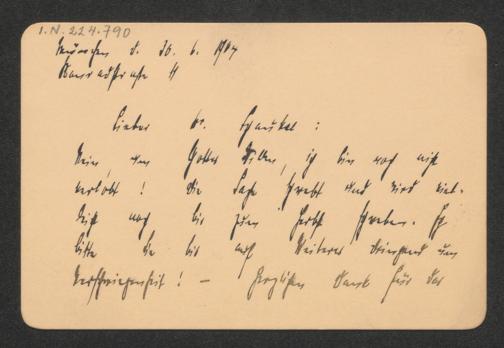 I.N. 224.790
München d. 26. 6. 1904
Konradstraße 11
Lieber Hr. Schaukal :
Nein, um Gottes Willen, ich bin noch nicht
verlobt ! Die Sache schwebt und wird viel-
leicht noch bis zum Herbst schweben. Ich
bitte Sie bis auf Weiteres dringend um
Verschwiegenheit ! — Herzlichen Dank für das